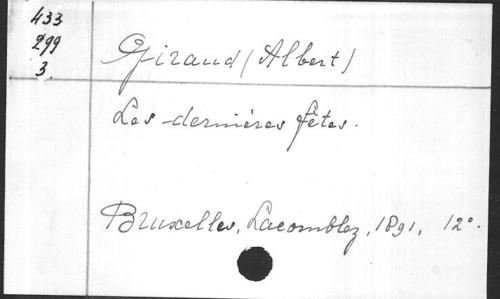 433
299
3.
Giraud (Albert)
Les dernières fêtes.
Bruxelles, Lacomblez, 1891, 12°.